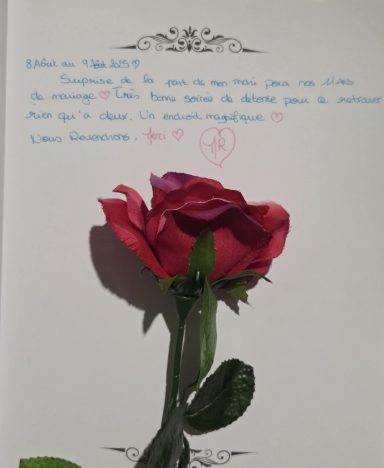 8 Août au 9 Août 2025 ♡
Surprise de la part de mon mari pour nos 11 ANS
de mariage ♡ Très bonne soirée de détente pour ce retrouver
rien qu'a deux. Un endroit magnifique ♡
Nous Reviendrons. Merci ♡